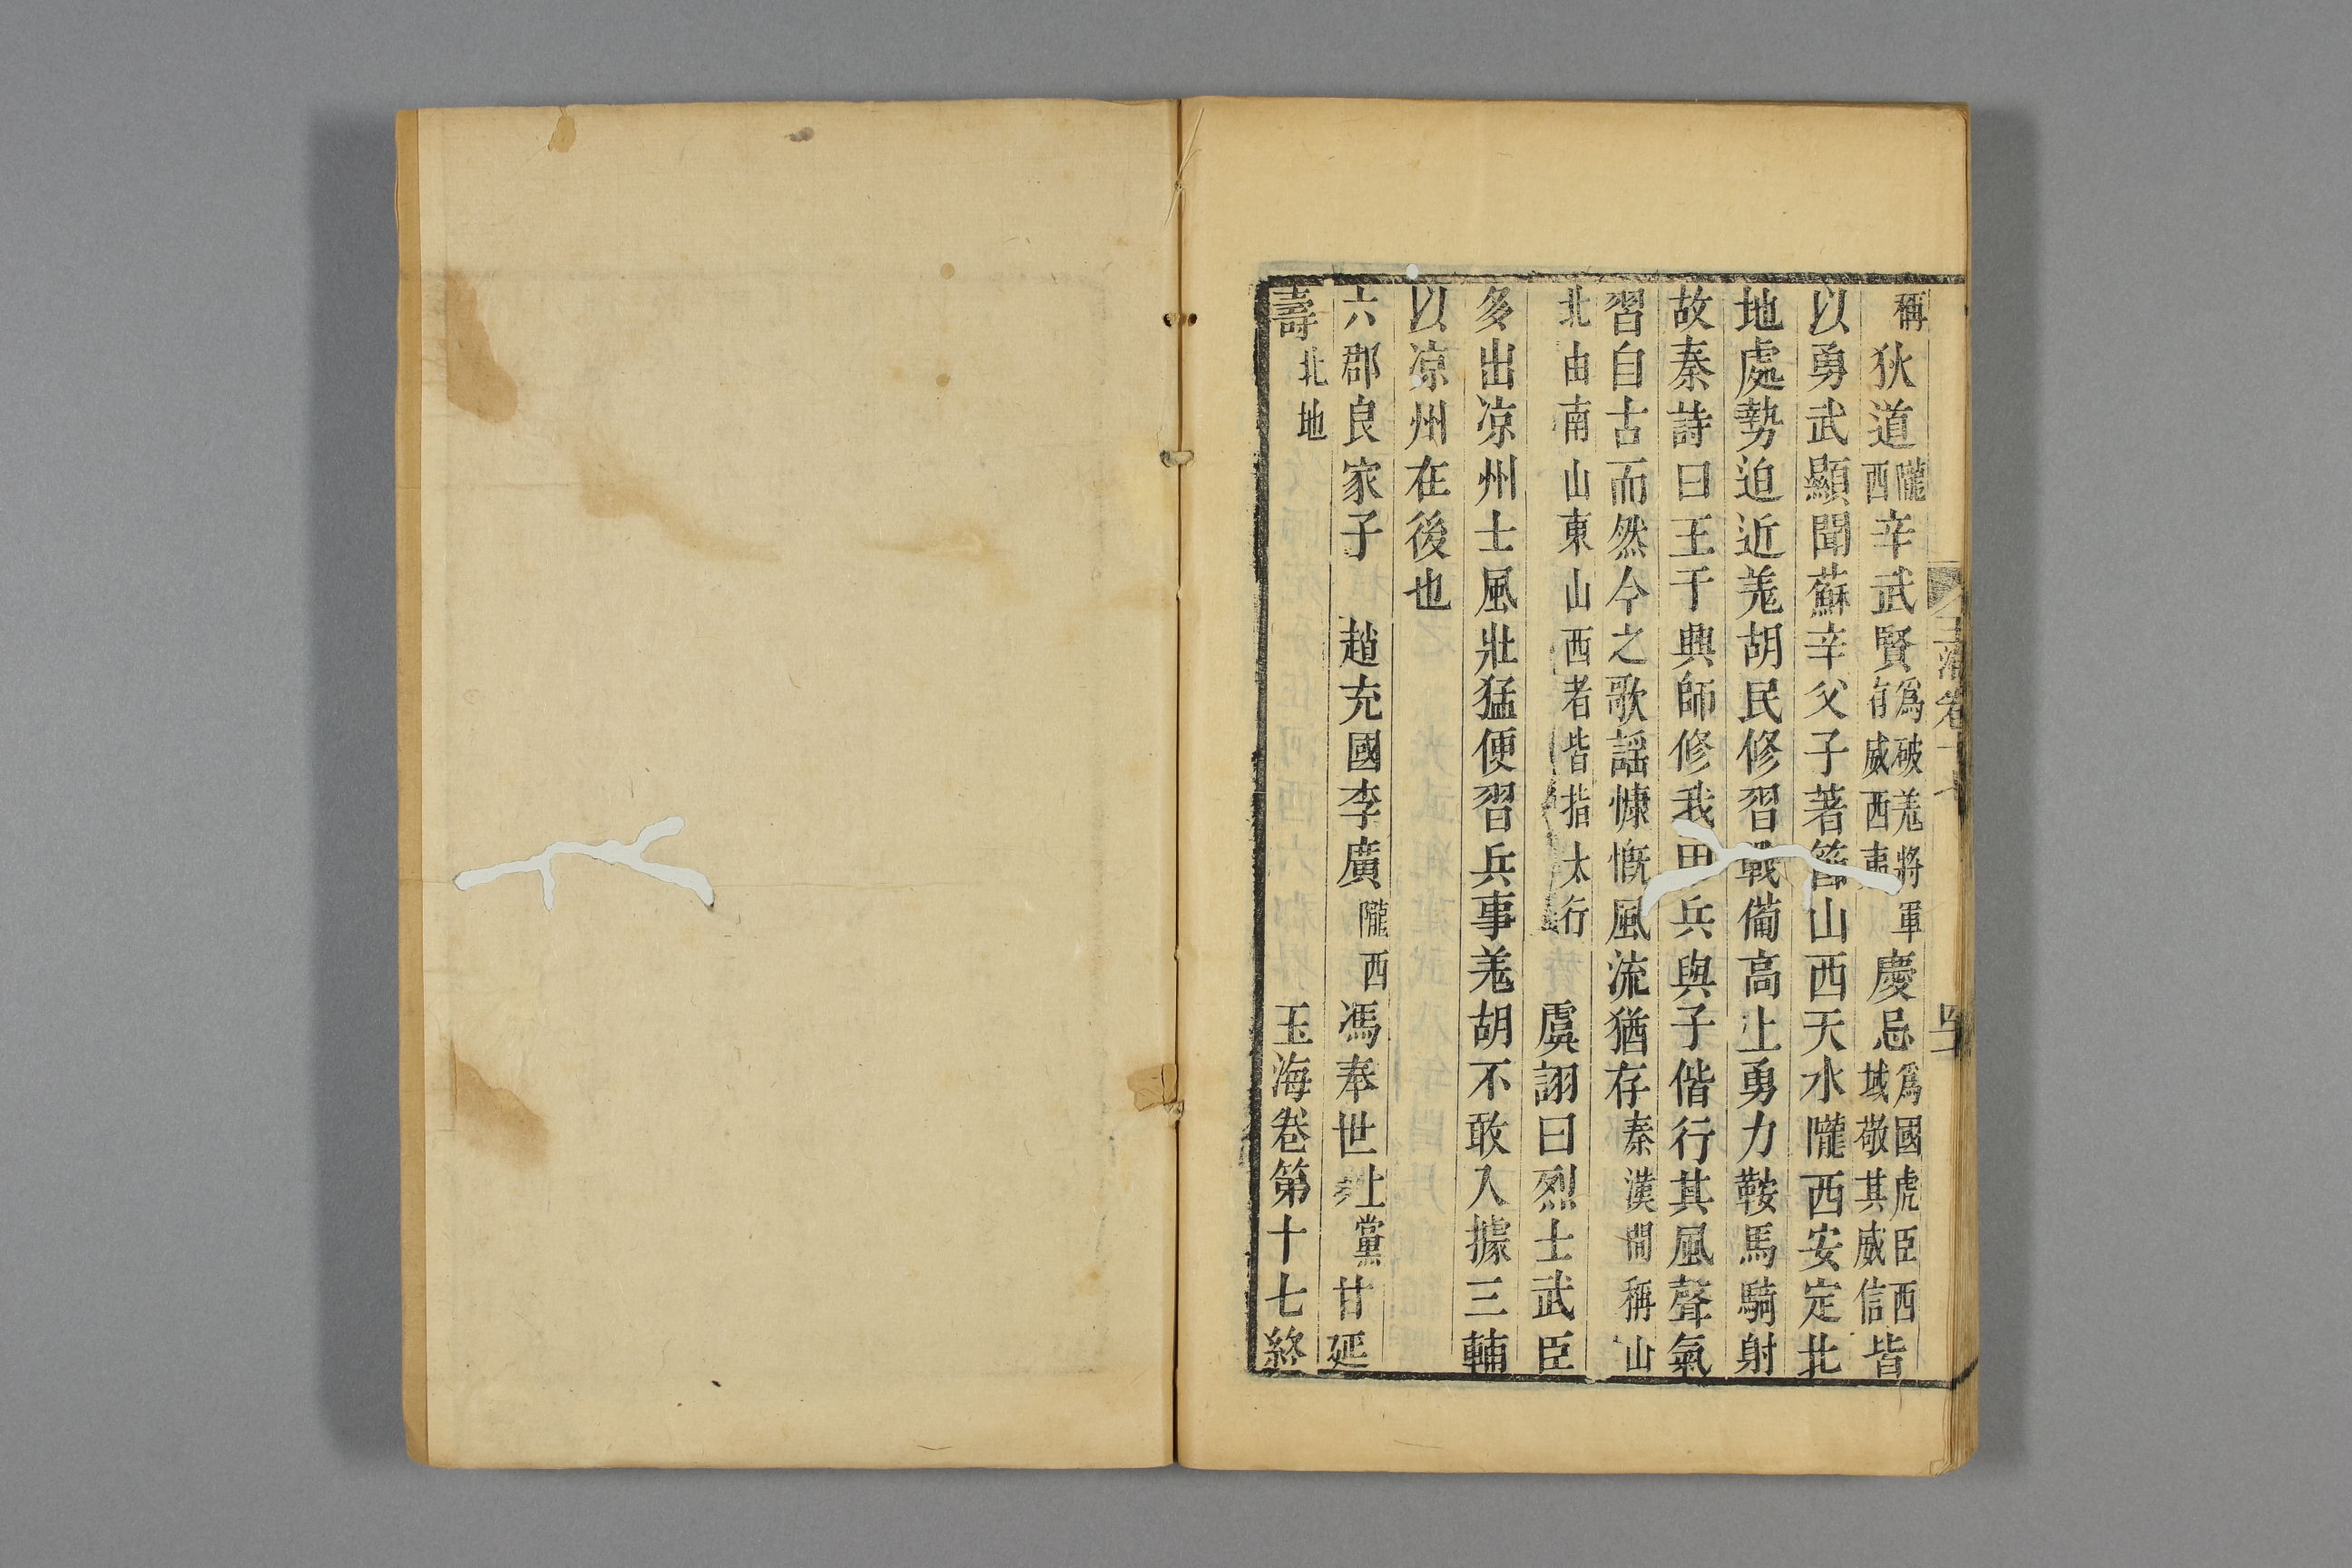 稱狄道隴西辛武賢爲破羗將軍有威西夷慶忌爲國虎臣西域敬其威信皆
以勇武顯聞蘇辛父子著節山西天水隴西安定北
地處勢迫近羗胡民修習戰備高上勇力鞍馬騎射
故秦詩曰王于興師修我甲兵與子偕行其風聲氣
習自古而然今之歌謡慷慨風流猶存秦漢間稱山
北由南山東山西者皆指太行 虞詡曰烈士武臣
多出凉州士風壯猛便習兵事羗胡不敢入據三輔
以凉州在後也
六郡良家子 趙充國李廣隴西馮奉世上黨甘延
壽北地 玉海卷第十七終
玉海卷十七